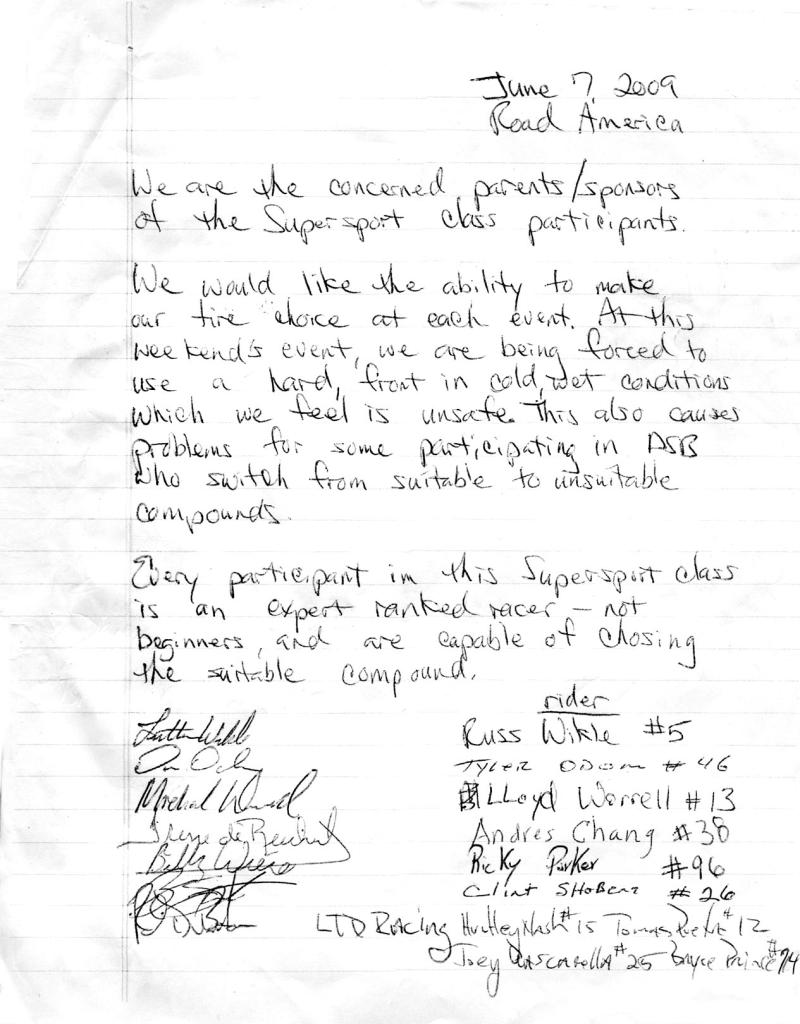 June 7, 2009
Road America
We are the concerned parents/sponsors
of the Supersport class participants.
We would like the ability to make
our tire choice at each event. At this
weekend's event, we are being forced to
use a hard, front in cold, wet conditions
which we feel is unsafe. This also causes
problems for some participating in DSB
who switch from suitable to unsuitable
compounds.
Every participant in this Supersport class
is an expert ranked racer - not
beginners, and are capable of chosing
the suitable compound.
rider
Russ Wikle #5
Tyler Odom #46
LLoyd Worrell #13
Andres Chang #38
Ricky Parker #96
Clint SHobert #26
LTD Racing Huntley Nash #15 Tomas Puerta #12
Joey Pascarella #25 Bryce Prince #74